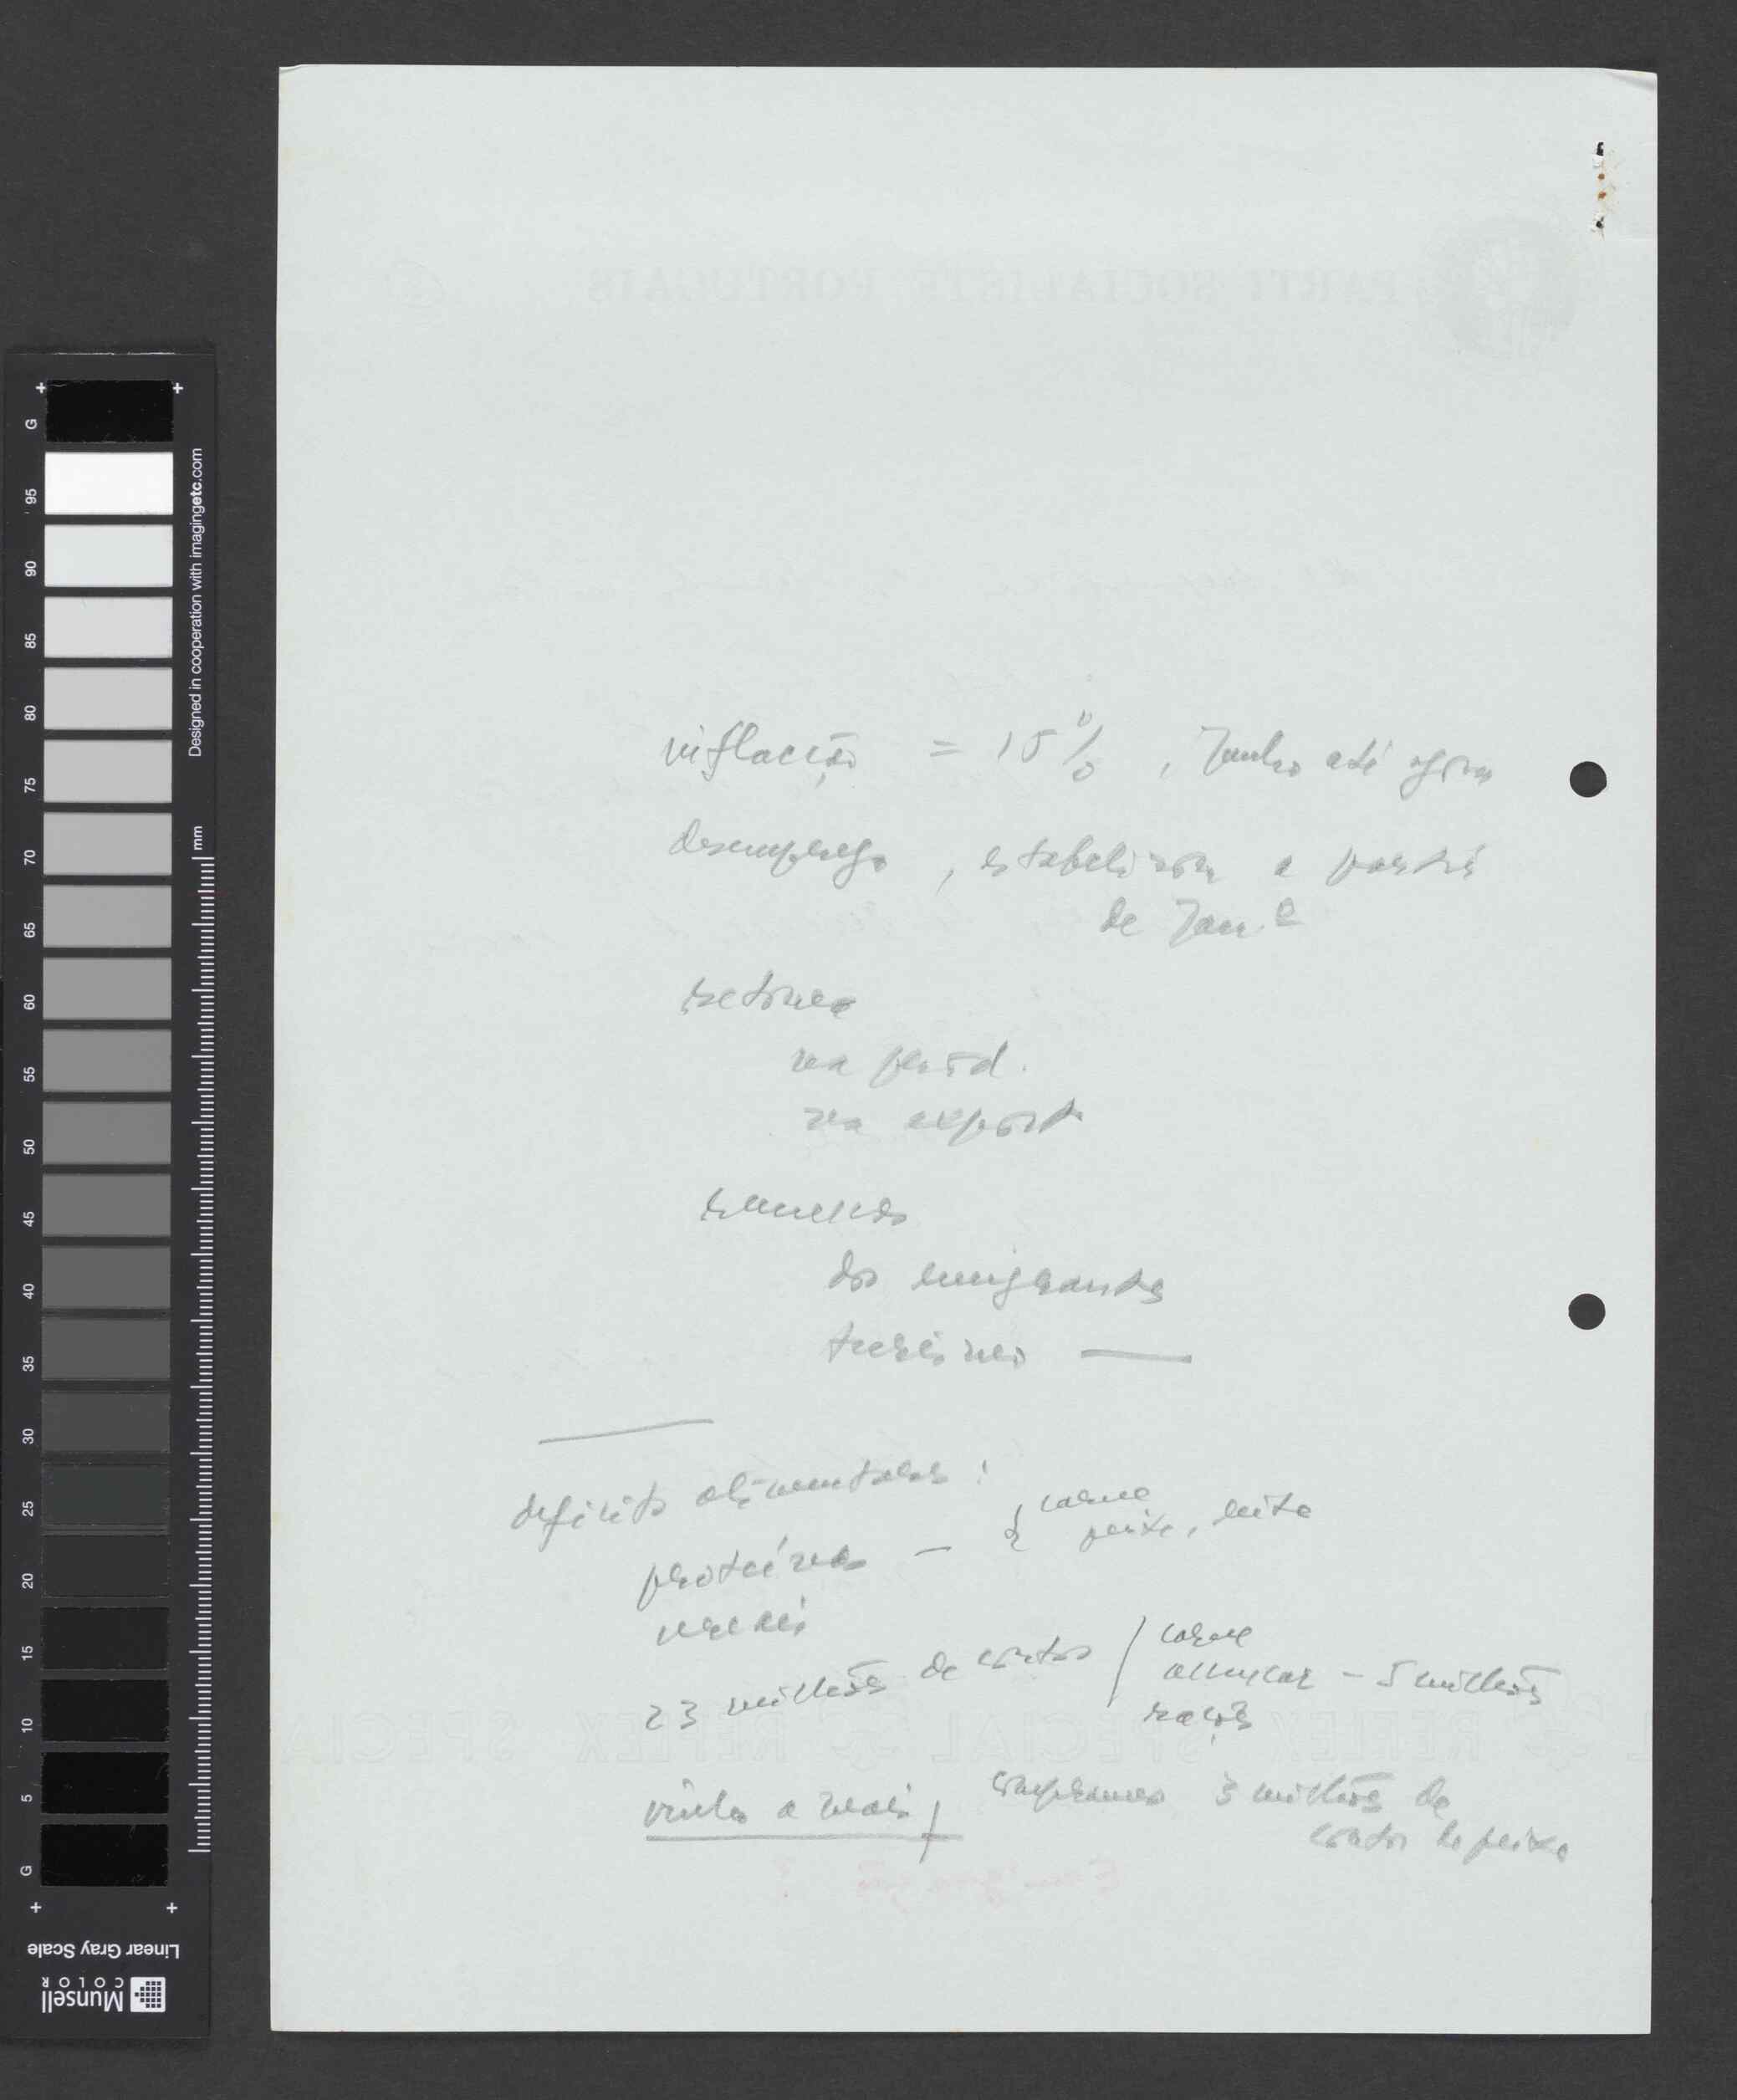 inflacção = 15%, Junho até agora
desemprego, estabelizou a partir
de Jan.º
retoma
na prod.
na export
remessas
dos emigrantes
turismo —
deficits alimentares:
proteínas — { carne
peixe, leite
cereais
23 milhões de contos / carne
assucar - 5 milhões
rações
vinho a mais, compramos 3 milhões de
contos de peixe
PARTI SOCIALISTE PORTUGAIS
REFLEX SPECIAL REFLEX SPECIAL
Emigração ?
Designed in cooperation with imagingetc.com
mm
G 95 90 85 80 75 70 65 60 55 50 45 40 35 30 25 20 15 10 5 G
Linear Gray Scale
Munsell
COLOR